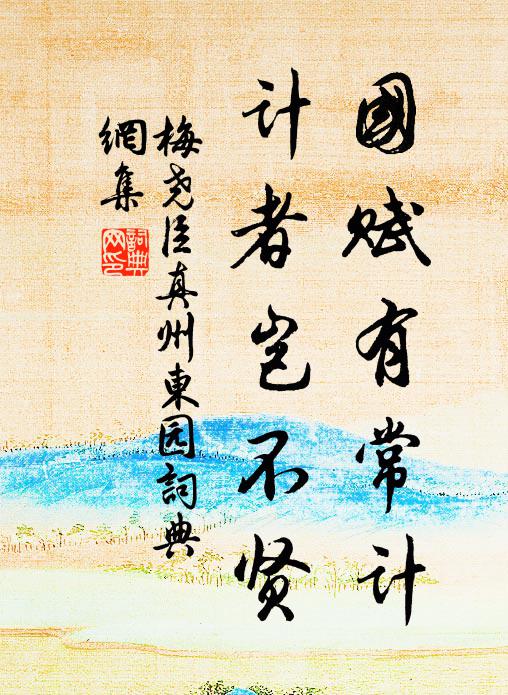 國赋有常计
计者岂不贤
梅尧臣真州東园詞典
網集
詞典
网印